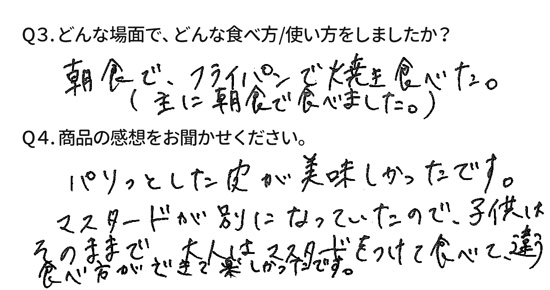 Q3.どんな場面で、どんな食べ方/使い方をしましたか？
朝食で、フライパンで焼き食べた。
(主に朝食で食べました。)
Q4.商品の感想をお聞かせください。
パリっとした皮が美味しかったです。
マスタードが別になっていたので、子供は
そのままで 大人はマスタードをつけて食べて、違う
食べ方ができて楽しかったです。